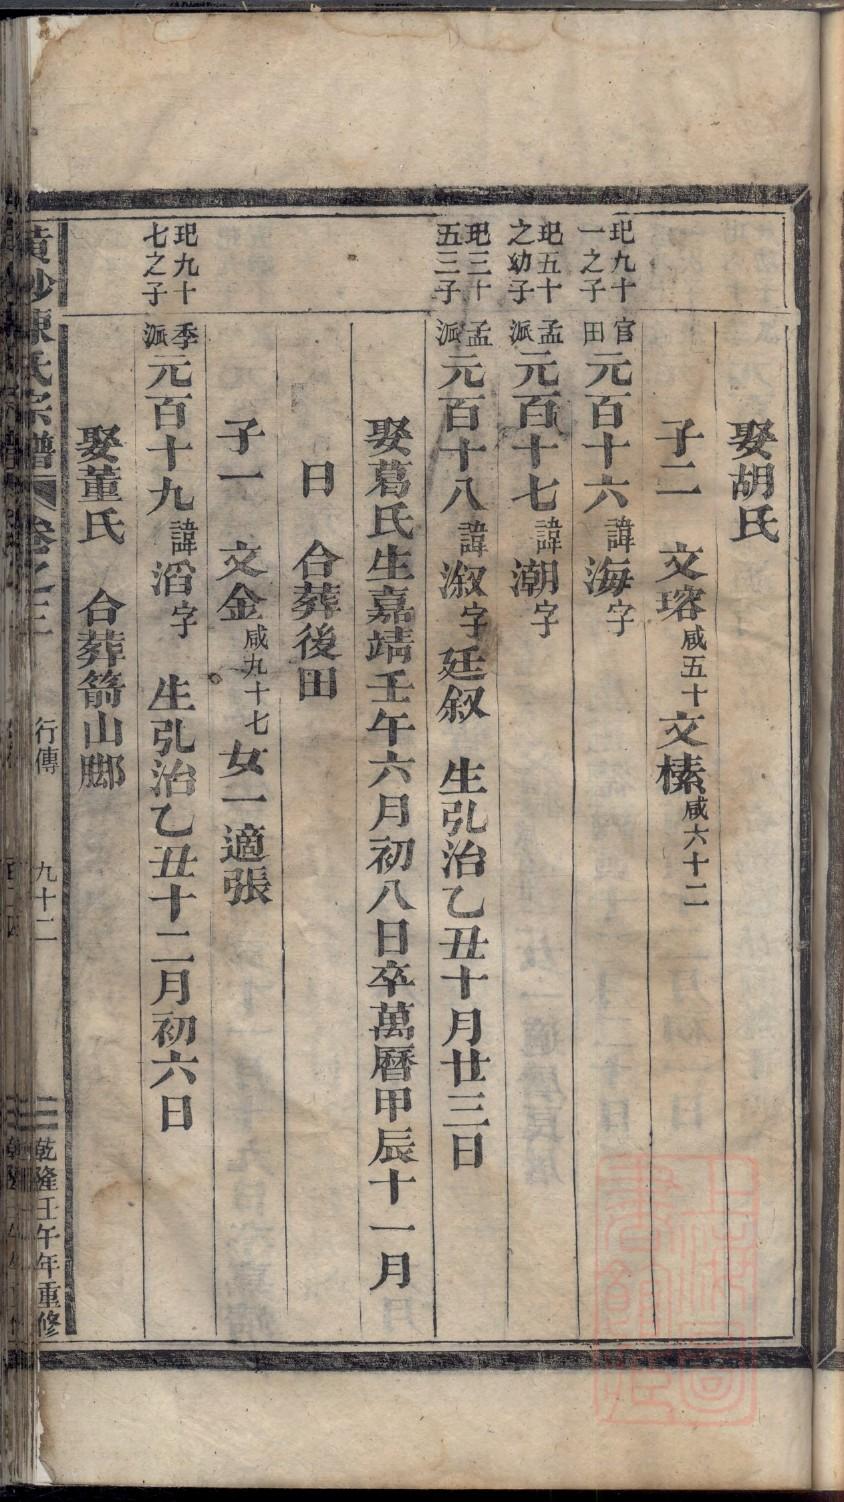 娶胡氏
子二　文瑢咸五十文榡咸六十二
玘九十一之子　官田元百十六諱海字
玘五十之幼子　孟派元百十七諱潮字
玘三十五三子　孟派元百十八諱溆字廷叙　生弘治乙丑十月廿三日
娶葛氏生嘉靖壬午六月初八日卒萬曆甲辰十一月
日　合葬後田
子一　文金咸九十七女一適張
玘九十七之子　季派元百十九諱滔字　生弘治乙丑十二月初六日
娶董氏　合葬箭山脚
黄沙陳氏宗譜　卷之三　行傳　九十二　乾隆壬午年重修